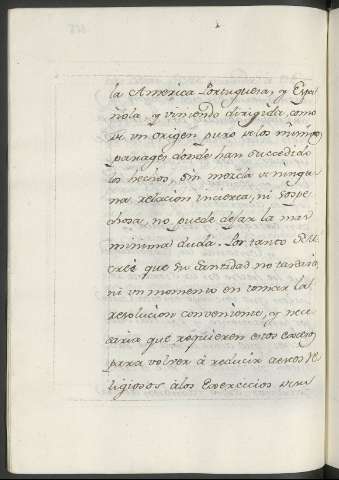 la America Portuguesa, y Espa
ñola, y viniendo dirigida, como
de un origen puro de los mismos
parages donde han succedido
los hechos, sin mezcla de ningu
na relacion incierta, ni sospe
chosa, no puede dejar la mas
minima duda. Por tanto
cree que Su Santidad no tardará
ni un momento en tomar la
resolucion conveniente, y nece
saria que requieren estos excesos
para volver á reducir a estos Re
ligiosos á los Exercicios de su